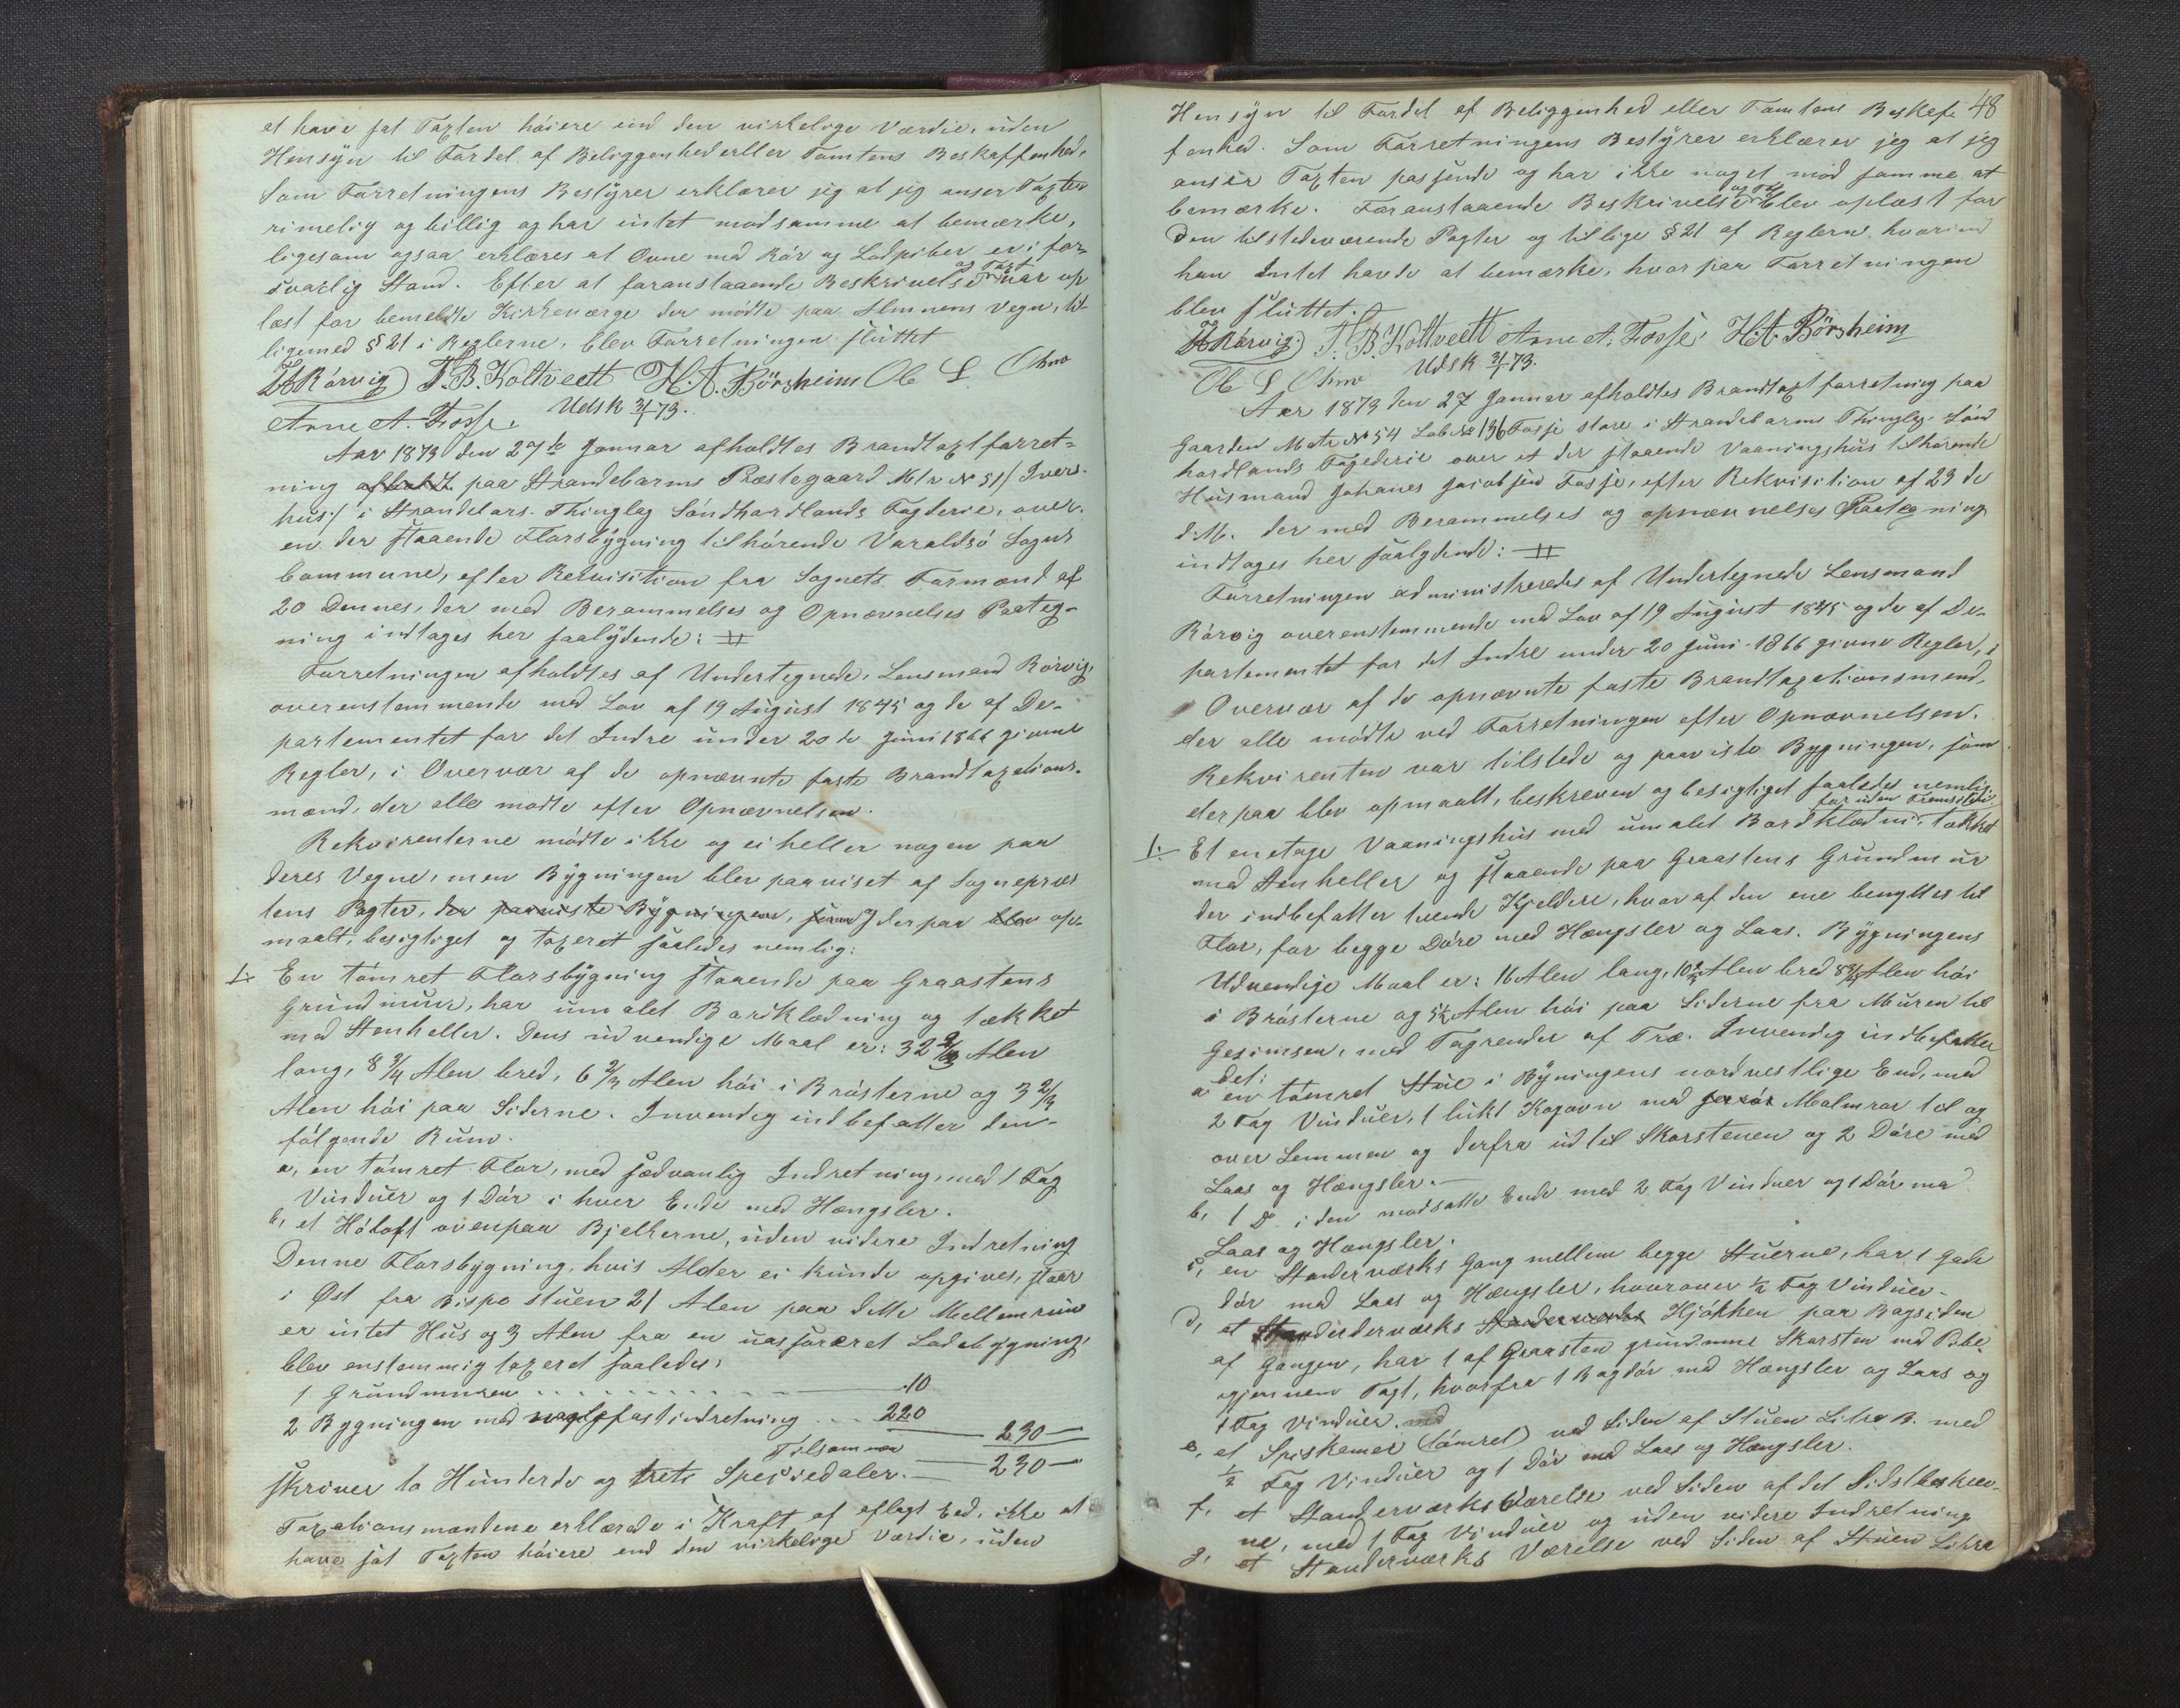 at have sat Taxten höiere end den virkelige Værdie, uden
Hensyn til Fordel af Beliggenhed eller Tomtens Beskaffenhed,
Som Forretningens Bestyrer erklærer jeg at jeg anser Taxten
rimelig og billig og har intet mod samme at bemærke,
ligesom ogsaa erklæres at Ovne med Rör og Ladpiber er i for-
svarlig Stand. Efter at foranstaaende Beskrivelse og Taxt var op
læst for bemeldte Kirkeværge der mödte paa Almuens Vegn, til-
ligemed § 21 i Reglerne, blev Forretningen sluttet
Rörvig) T. B. Koltveett H. A. Börsheim Ole L. Omo
Arne A. Fosse. Udsk 3/1 73.
Aar 1873 den 27de Januar afholdtes Brandtaxtforret-
ning afholdt paa Strandebarms Præstegaard Mtr No 51 / Iver-
hus / i Strandebars. Thinglag Söndhordlands Fogderie, over
en der staaende Florsbygning tilhörende Varaldsö Sogns
Commune, efter Rekvisition fra Sognets Formænd af
20 Dennes, der med Berammelses og Opnævnelses Paateg-
ning indtages her saalydende: #
Forretningen afholdtes af Undertegnede, Lensmand Rörvig,
overenstemmende med Lov af 19 August 1845 og de af De-
partementet for det Indre under 20de Juni 1866 givne
Regler, i Overvær af de opnævnte faste Brandtaxations-
mænd, der alle mödte efter Opnævnelsen.
Rekvirenterne mödte ikke og ei heller nogen paa
deres Vegne, men Bygningen blev paaviset af Sognepræs
tens Pagter, der paaviste Bygningen, som og derpaa blev op-
maalt, besigtiget og taxeret saaledes nemlig:
1. En tömret Florsbygning staaende paa Graastens
Grundmur, har umalet Bordklædning og tækket
med Stenheller. Dens udvendige Maal er: 32 2/3 Alen
lang, 8 3/4 Alen bred, 6 2/3 Alen höi i Brösterne og 3 2/3
Alen höi paa Siderne. Invendig indbefatter den
fölgende Rum.
a, en tömret Flor, med sædvanlig Indretning, med 1 Fag
Vinduer og 1 Dör i hver Ende med Hængsler.
b, et Höloft ovenpaa Bjelkerne, uden videre Indretning
Denne Florsbygning, hvis Alder ei kunde opgives, staar
i Øst fra Bispestuen 21 Alen paa dette Mellemrum
er intet Hus og 3 Alen fra en uassureret Ladebygning,
blev enstemmig taxeret saaledes:
1 Grundmuren . . . . . . . . . . 10
2 Bygningen med fastindretning . . . 220 230 —
Tilsammen 230 —
skriver to Hunderde og treti Speciedaler. —
Taxationsmændene erklærede i Kraft af aflagt Eed, ikke at
have sat Taxten höiere end den virkelige Værdie, uden
48
Hensyn til Fordel af Beliggenhed eller Tomtens Beskaf-
fenhed. Som Forretningens Bestyrer erklærer jeg at jeg
anser Taxten passende og har ikke noget mod samme at
bemærke. Foranstaaende Beskrivelse og Taxt blev oplæst for
den tilstedeværende Pagter og tillige § 21 af Reglern. hvorimod
han Intet havde at bemærke, hvorpaa Forretningen
blev sluttet.
Rörvig) T. B. Koltveett Arne A. Fosse. H. A. Börsheim
Ole L Omo Udsk 3/1 73.
Aar 1873 den 27 Januar afholdtes Brandtaxtforretning paa
Gaarden Matr No 54 Löb No 136 Fosse store i Strandebarms Thinglag. Sönd
hordlands Fogederie over et der staaende Vaaningshus tilhörende
Husmand Johanes Jacobsen Fosse, efter Rekvisition af 23 de
d. M. der med Berammelses og opnævnelses Paategning
indtages her saalydende: #
Forretningen administreredes af Undertegnede Lensmand
Rörvig overenstemmende med Lov af 19 August 1845 og de af De-
partementet for det Indre under 20 Juni 1866 givne Regler, i
Overvær af de opnævnte faste Brandtaxationsmænd,
der alle mödte ved Forretningen efter Opnævnelsen.
Rekvirenten var tilstede og paaviste Bygningen, som
derpaa blev opmaalt, beskreven og besigtiget saaledes nemlig:
for uden Fremsiden
1. Et enetage Vaaningshus med umalet Bordklædni. tækket
med Stenheller og staaende paa Graastens Grundmur
der indbefatter tvende Kjeldere, hvoraf den ene benyttes til
Flor, for begge Döre med Hængsler og Laas. Bygningens
Udvendige Maal er: 16 Alen lang, 10 Alen bred 8 Alen höi
i Brösterne og 5 1/2 Alen höi paa Siderne fra Muren til
Gesimsen, med Tagrender af Træ. Invendig indbefatter
det:
a en tömret Stue i Bÿningens nordvestlige End, med
2 Fag Vinduer, 1 lukt Kogovn med Malmrör til og
over Lemmen og derfra ud til Skorstenen og 2 Döre med
Laas og Hængsler. —
b, 1 D. i den modsatte Ende med 2 Fag Vinduer og 1 Dör med
Laas og Hængsler.
c, en Standerværks Gang mellem begge Stuerne, har 1 Gade
dör med Laas og Hængsler, hvorover 1/2 Fag Vinduer.
d, et Standerværks Kjökken paa Bagsiden
af Gangen, har 1 af Graasten grundmuret Skorsten med Pibe
igjennem Taget, hvorfra 1 Bagdör med Hængsler og Laas og
1 Fag Vinduer.
e, et Spiskamer (tömret) ved Siden af Stuen Litra B. med
1/2 Fag Vinduer og 1 Dör med Laas og Hængsler.
f. et Standerværks Værelse ved Siden af det Sidstbeskrev-
ne, med 1 Fag Vinduer og uden videre Indretning
g, et Standerværks Værelse ved Siden af Stuen Litra